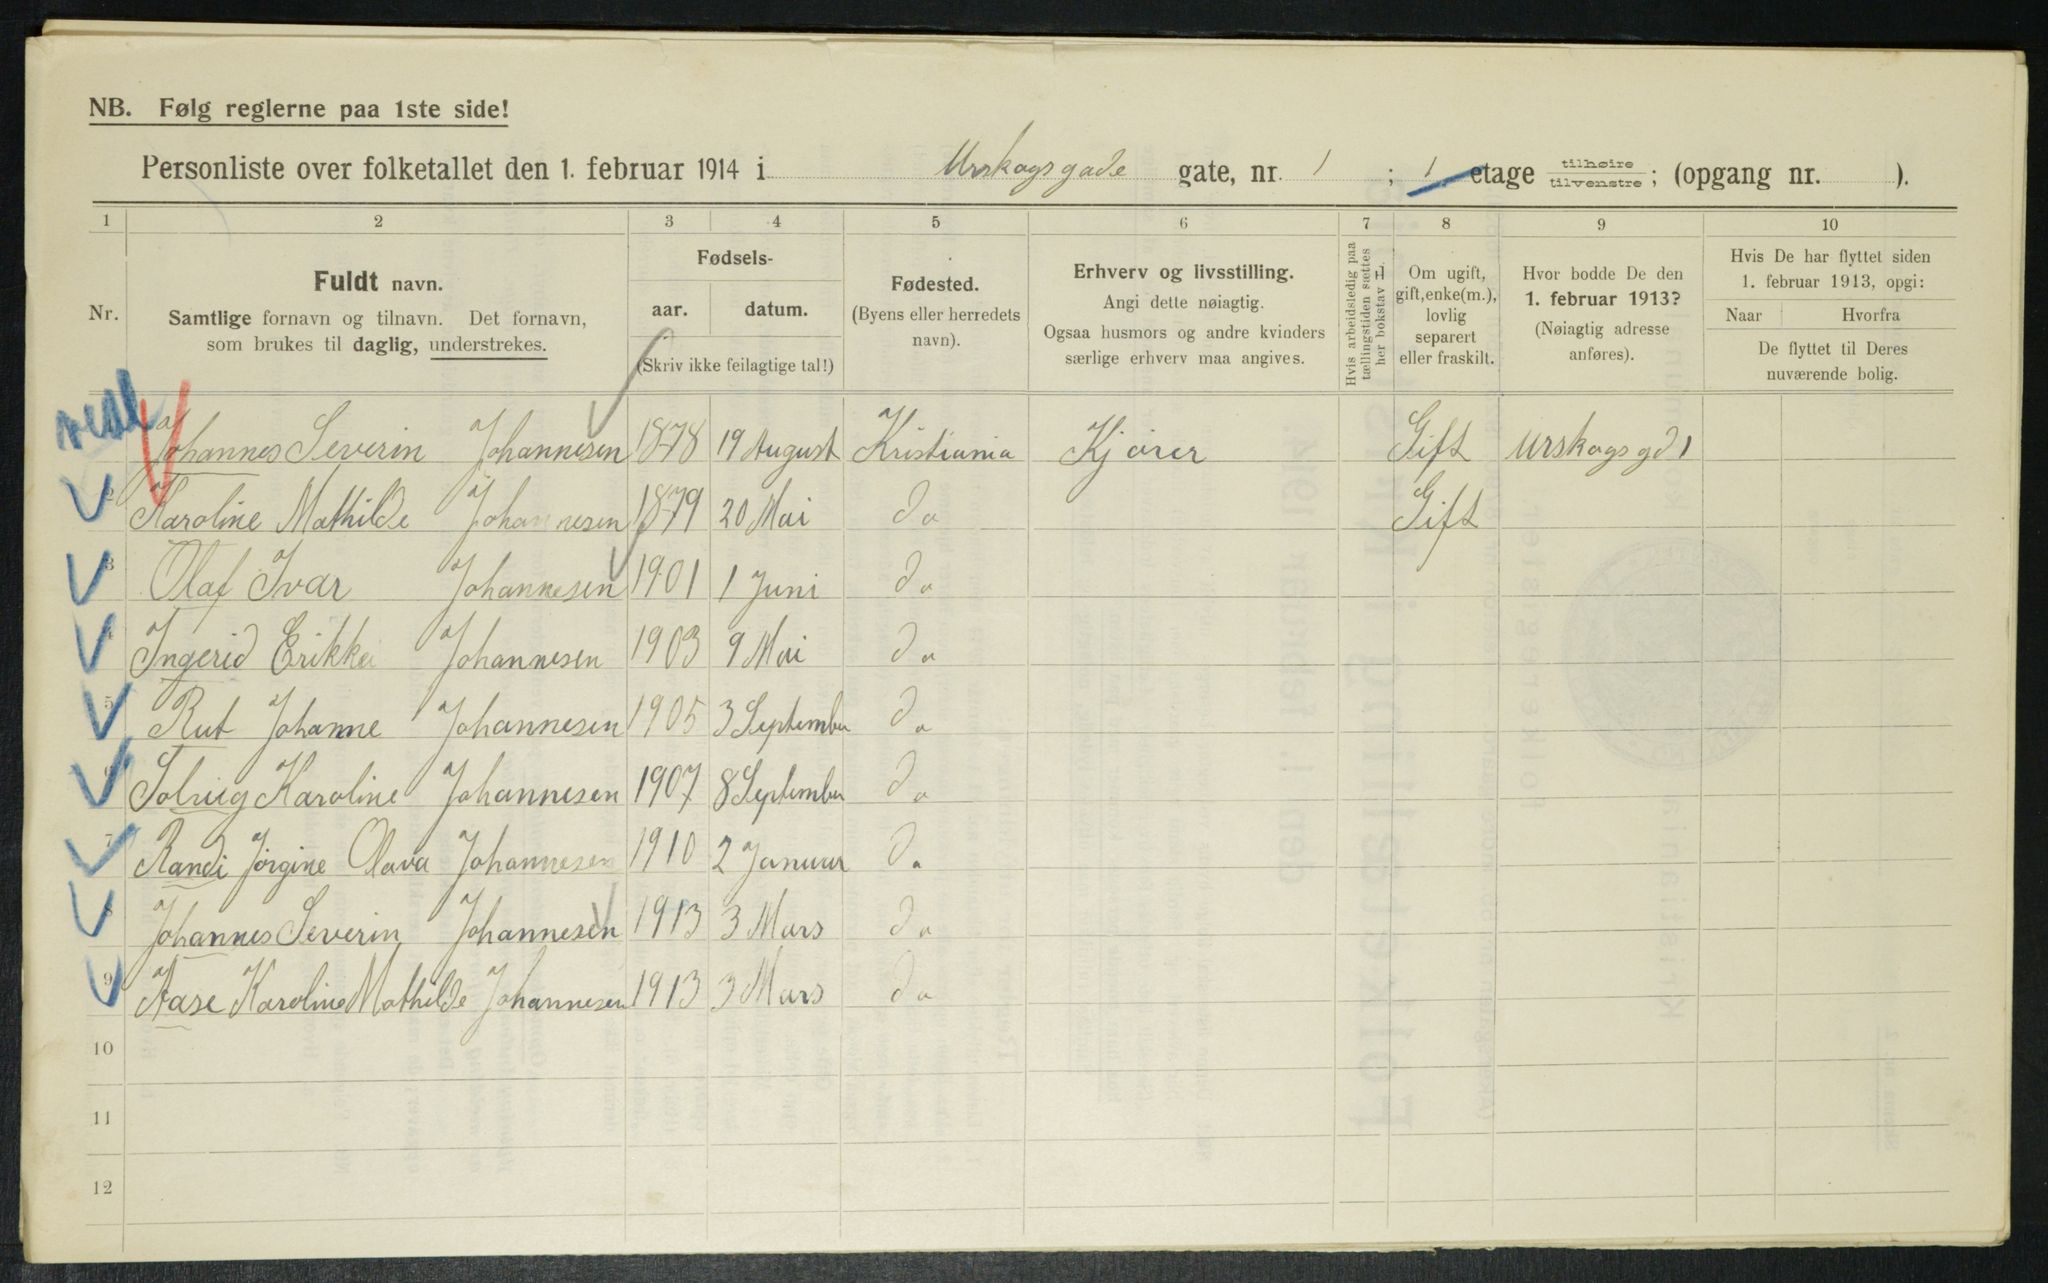 NB. Følg reglerne paa 1ste side!
Personliste over folketallet den 1. februar 1914 i Urskogsgade gate, nr. 1 ; 1 etage tilhøire tilvenstre ; (opgang nr. ).
1 2 3 4 5 6 7 8 9 10
Nr.
Fuldt navn.
Samtlige fornavn og tilnavn. Det fornavn,
som brukes til daglig, understrekes.
Fødsels-
aar. datum.
(Skriv ikke feilagtige tal!)
Fødested.
(Byens eller herredets
navn).
Erhverv og livsstilling.
Angi dette nøiagtig.
Ogsaa husmors og andre kvinders
særlige erhverv maa angives.
Hvis arbeidsledig paa
tællingstiden sættes
her bokstav L.
Om ugift,
gift, enke(m.),
lovlig
separert
eller fraskilt.
Hvor bodde De den
1. februar 1913?
(Nøiagtig adresse
anføres).
Hvis De har flyttet siden
1. februar 1913, opgi:
Naar Hvorfra
De flyttet til Deres
nuværende bolig.
Johannes Severin Johannesen 1878 19 August Kristiania Kjører Gift Urskogsgd 1
2 Karoline Mathilde Johannesen 1879 20 Mai do Gift
3 Olaf Ivar Johannesen 1901 1 Juni do
4 Ingerid Erikka Johannesen 1903 9 Mai do
5 Rut Johanne Johannesen 1905 3 September do
6 Solveig Karoline Johannesen 1907 8 September do
7 Randi Jørgine Olava Johannesen 1910 2 Januar do
8 Johannes Severin Johannesen 1913 3 Mars do
9 Aase Karoline Mathilde Johannesen 1913 3 Mars do
10
11
12